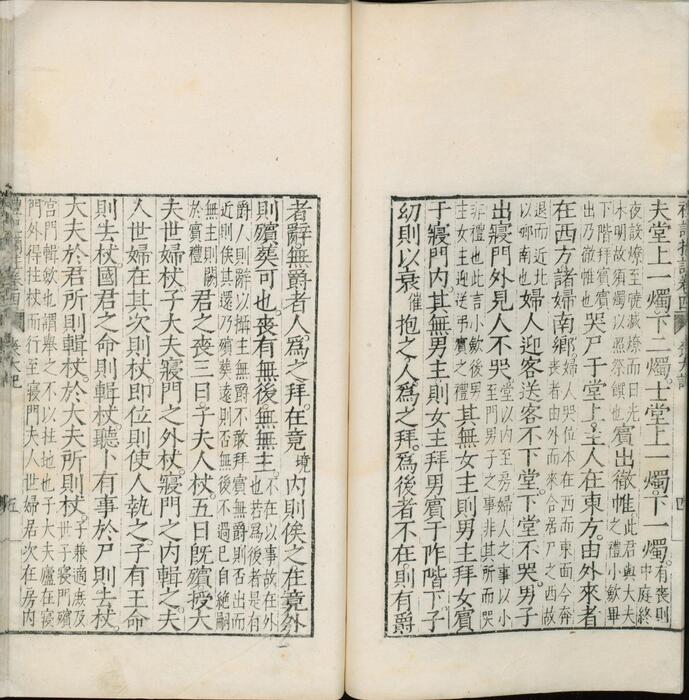 夫堂上一燭下二燭士堂上一燭下一燭有喪則中庭終
夜設燎至曉滅燎而日光未明故須燭以照祭饌也賓出徹帷此君與大夫之禮小歛畢
下階拜賓賓出乃徹帷也哭尸于堂上主人在東方由外來者
在西方諸婦南鄉婦人哭位本在西而東面今奔喪者由外而來合居尸之西故
退而近北以鄉南也婦人迎客送客不下堂下堂不哭男子
出寢門外見人不哭堂以內至房婦人之事以外至門男子之事非其所而哭
非禮也此言小歛後男主女主迎送弔賓之禮其無女主則男主拜女賓
于寢門內無男主則女主拜男賓于阼階下子
幼則以衰催抱之人爲之拜爲後者不在則有爵
者辭無爵者人爲之拜在竟境內則俟之在竟外
則殯葬可也喪有無後無無主不在以事故在外也若爲後者是有
爵人則辭以攝主無爵不敢拜賓無爵則否出而近則俟其還乃殯葬遠則否無後不過已自絕嗣
無主則闕於賓禮君之喪三日子夫人杖五日旣殯授大
夫世婦杖子大夫寢門之外杖寢門之內輯之夫
人世婦在其次則杖卽位則使人執之子有王命
則去杖國君之命則輯杖聽卜有事於尸則去杖
大夫於君所則輯杖於大夫所則杖子兼適庶及世子寢門殯
宮門輯斂也謂舉之不以拄地也子大夫廬在寢門外得拄杖而行至寢門夫人世婦居次在房內
喪大記
五